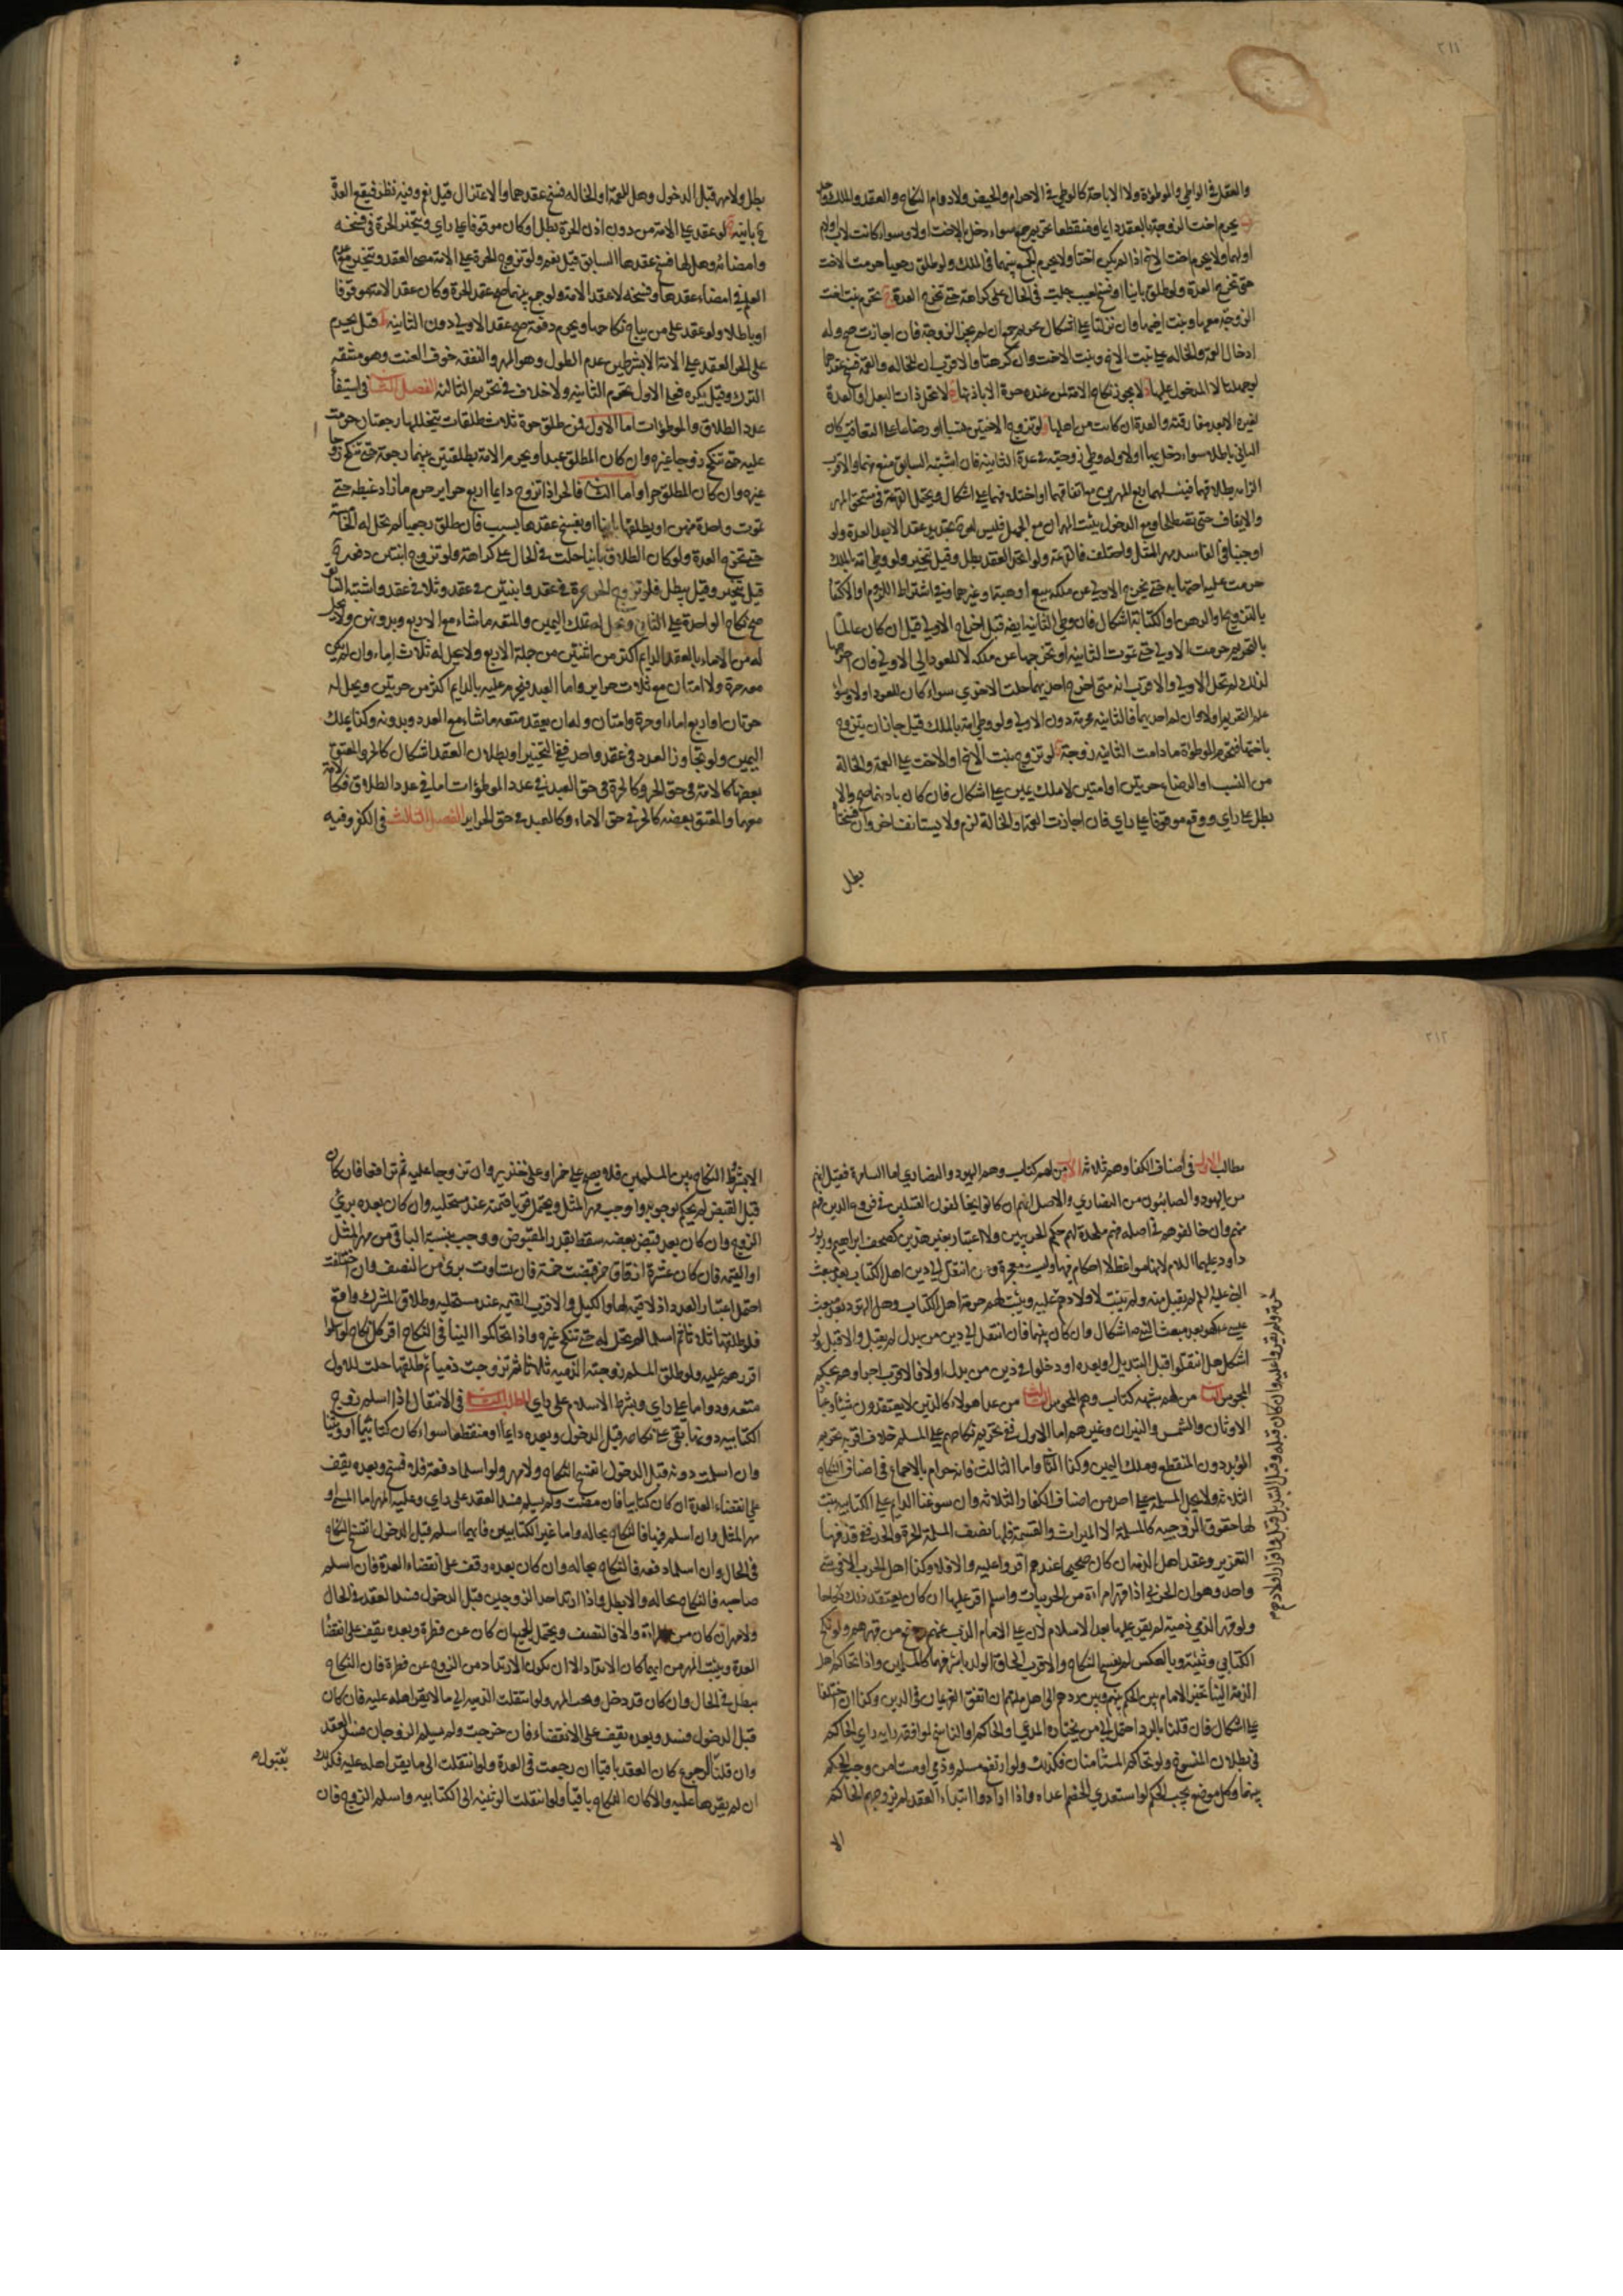 ٢١١
والعقل في الواطي والموطوءة ولا الاباحة كالوطي في الاحرام والحيض ولا دوام النكاح والعقد والملك
يحرم اخت الزوجة بالعقد دايما ومنقطعا تحريم جمع سواء دخل بالاخت اولا وسواء كانت لاب او لام
او لهما ولا يحرم اخت الاخ اذا لم يكن اختا ولا يحرم الجمع بينهما في الملك ولو طلق رجعيا حرمت الاخت
حتى تخرج العدة ولو طلق باينا او فسخ لعيب حلت في الحال على كراهة حتى تخرج العدة تحرم بنت اخت
الزوجة معها وبنت اخيها وان نزلتا على اشكال تحريم جمع ان لم يجز الزوجة فان اجازت صح وله
ادخال العمة والخاله على بنت الاخ وبنت الاخت وان كرهتا والاقرب ان للخاله والعمة فسخ عقدهما
لو جهلتا لا المدخول عليها لا يجوز نكاح الامة لمن عنده حرة الا باذنها لا تحل ذات البعل او العدة
لغيره الا بعد مفارقته والعدة ان كانت من اهلها لو تزوج الاختين نسبا او رضاعا على التعاقب كان
الثاني باطلا سواء دخل بها اولا وله وطي زوجته في عدة الثانية فان اشتبه السابق منع منهما والاقرب
الزامه بطلاقهما فيثبت لهما ربع المهرين مع اتفاقهما او اختلافهما على اشكال ويحتمل القرعة في مستحق المهر
والايقاف حتى تصطلحا ومع الدخول يثبت المهران مع الجهل
اوجبنا في الفاسد مهر المثل واختلف فالقرعة ولو اتحد العقد بطل وقيل يتخير ولو وطي امة بالملك
حرمت عليه اختها به حتى تخرج الاولى عن ملكه ببيع او هبة او غيرهما وفي اشتراط اللزوم او الاكتفا
بالتزويج او الرهن او الكتابة اشكال فان وطي الثانية ايضا قبل اخراج الاولى قيل ان كان عالما
بالتحريم حرمت الاولى حتى تموت الثانية او تخرجها عن ملكه لا للعود الى الاولى فان اخرجها
لذلك لم تحل الاولى والاقرب انه متى اخرج احديهما حلت الاخرى سواء كان للعود اولا وسواء
علم التحريم اولا وان لم احديهما فالثانية محرمة دون الاولى ولو وطي امة بالملك قيل جاز ان يتزوج
باختها فتحرم الموطوءة ما دامت الثانية زوجة لو تزوج بنت الاخ او الاخت على العمة والخالة
من النسب او الرضاع حرتين او امتين لا ملك يمين على اشكال فان كان باذنهما صح والا
بطل على راي ووقع موقوفا على راي فان اجازت العمة والخالة لزم ولا يستانف اخر وان فسختا
بطل
بطل ولا مهر قبل الدخول وهل للعمة او الخاله فسخ عقدهما والاعتزال قيل نعم وفيه نظر فيقع العدة
باينه لو عقد على الامة من دون اذن الحرة بطل او كان موقوفا على راي وتتخير الحرة في فسخه
وامضائه وهل لها فسخ عقدها السابق قيل نعم ولو تزوج الحرة على الامة مضى العقد وتتخير مع عدم
العلم في امضاء عقدها وفسخه لا عقد الامة ولو جمع بينهما صح عقد الحرة وكان عقد الامة موقوفا
او باطلا ولو عقد على من يباح نكاحها ويحرم دفعة صح عقد الاولى دون الثانيه قيل يحرم
على الحر العقد على الامة الا بشرطين عدم الطول وهو المهر والنفقه خوف العنت وهو مشقه
الترك وقيل يكره فعلى الاول تحرم الثانيه ولا خلاف في تحريم الثالثة الفصل الثاني في استيفاء
عدد الطلاق والموطوءات اما الاول فمن طلق حرة ثلاث طلقات يتخللها رجعتان حرمت
عليه حتى تنكح زوجا غيره وان كان المطلق عبدا ويحرم الامة بطلقتين بينهما رجعة حتى تنكح زوجا
غيره وان كان المطلق حرا واما الثاني فالحر اذا تزوج دايما اربع حراير حرم ما زاد غبطة حتى
تموت واحدة منهن او يطلقها باينا او يفسخ عقدها بسبب فان طلق رجعيا لم تحل له الخامسة
حتى تخرج العدة ولو كان الطلاق باينا حلت في الحال على كراهة ولو تزوج اثنتين دفعة
قيل يتخير وقيل يبطل فلو تزوج الحر حرة في عقد واثنتين في عقد وثلاثا في عقد واشتبه السابق
صح نكاح الواحدة على الثاني وتحل له بملك اليمين والمتعة ما شاء مع الاربع وبدونهن ولا يحل
له من الاماء بالعقد الدايم اكثر من اثنتين من جملة الاربع ولا يحل له ثلاث اماء وان لم يكن
معه حرة ولا امتان مع ثلاث حراير واما العبد فيحرم عليه بالدايم اكثر من حرتين ويحل له
حرتان او اربع اماء او حرة وامتان وله ان يعقد متعة ما شاء مع العدد وبدونه وكذا بملك
اليمين ولو تجاوز العدد في عقد واحد ففي التخيير او بطلان العقد اشكال
بعضها كالامة في حق الحر وكالحرة في حق العبد في عدد الموطوءات اما في عدد الطلاق فكالامة
معهما والمعتق بعضه كالحر في حق الاماء وكالعبد في حق الحراير الفصل الثالث في الكفر وفيه
٢١٢
مطالب الاول في اصناف الكفار وهم ثلاثة الاول من لهم كتاب وهم اليهود والنصارى اما السامرة فقيل انهم
من اليهود والصابئون من النصارى والاصل انهم ان كانوا يخالفون القبلتين في فروع الدين فهم
منهم وان خالفوهم في اصله فهم ملحدة لهم حكم الحربيين ولا اعتبار بغير هذين كصحف ابراهيم وزبور
داود عليهما السلام لانها مواعظ لا احكام فيها وليست معجزة ومن انتقل الى دين اهل الكتاب بعد مبعث
النبي عليه السلام لم يقبل منه ولم يثبت لاولادهم حرمة اهل الكتاب وهل التهود بعد مبعث
عيسى كهو بعد مبعث النبي ص اشكال وان كان بينهما فان انتقل الى دين من بدل لم يقبل والا قبل ولو
اشكل هل انتقلوا قبل التبديل او بعده او دخلوا في دين من بدل اولا فالاقرب اجراؤهم بحكم
المجوس الثاني من لهم شبهه كتاب وهم المجوس الثالث من عدا هولاء كالذين لا يعتقدون شيئا وعباد
الاوثان والشمس والنيران وغيرهم اما الاول ففي تحريم نكاحهم على المسلم خلاف اقربه تحريم
المؤبد دون المنقطع وملك اليمين وكذا الثاني واما الثالث فانه حرام بالاجماع في اصناف النكاح
الثلاثة ولا يحل المسلمة على احد من اصناف الكفار الثلاثة وان سوغنا الدايم على الكتابيه يثبت
لها حقوق الزوجيه كالمسلمة الا الميراث والقسمة فلها نصف المسلمة الحرة والحد ففي قذفها
التعزير وعقد اهل الذمة ان كان صحيحا عندهم اقروا عليه والا فلا وكذا اهل الحرب الا في شيء
واحد وهو ان الحربي اذا قهر امراة من الحربيات واسلم اقر عليها ان كان يعتقد ذلك نكاحا
ولو قهر الذمي ذمية لم يقر عليها بعد الاسلام لان على الامام الذب عنهم ودفع من قهرهم ولو نكح
الكتابي وثنية وبالعكس لم يفسخ النكاح والاقرب الحاق الولد باشرفهما كالمسلمين واذا تحاكم اهل
الذمة الينا تخير الامام بين الحكم بينهم وبين ردهم الى اهل ملتهم ان اتفق الغريمان في الدين وكذا ان اختلفا
على اشكال فان قلنا بالرد احتمل الى من يختاره المدعي والحاكم والناسخ لموافقة رايه راي الحاكم
في بطلان المنسوخ ولو تحاكم المستامنان فكذلك ولو ارتفع مسلم وذمي او مستامن وجب الحكم
بينهما وكل موضع يجب الحكم لو استعدى الخصم اعداه واذا ارادوا ابتداء العقد لم يزوجهم الحاكم
الا
الا بشروط النكاح بين المسلمين فلا يصح على خمر او على خنزير وان تزوجا عليه ثم ترافعا فان كان
قبل القبض لم يحكم بوجوبه واوجب مهر المثل ويحتمل قويا قيمته عند مستحليه وان كان بعده برئ
الزوج وان كان بعد قبض بعضه سقط بقدر المقبوض ووجب بنسبة الباقي من مهر المثل
او القيمة فان كان عشرة ازقاق خمر فقبضت خمسة فان تساوت برئ من النصف وان اختلفت
احتمل اعتبار العدد اذ لا قيمة لها والكيل والاقرب القيمة عند مستحليه وطلاق المشرك واقع
فلو طلقها ثلاثا ثم اسلما لم تحل له حتى تنكح غيره واذا تحاكموا الينا في النكاح اقر كل نكاح لو اسلموا
اقررهم عليه ولو طلق المسلم زوجته الذمية ثلاثا ثم تزوجت ذميا ثم طلقها حلت للاول
متعه ودواما على راي وبشرط الاسلام على راي المطلب الثاني في الانتقال اذا اسلم زوج
الكتابيه دونها بقي على نكاحه قبل الدخول وبعده دايما او منقطعا سواء كان كتابيا او وثنيا
وان اسلمت دونه قبل الدخول انفسخ النكاح ولا مهر ولو اسلما دفعة فلا فسخ وبعده يقف
على انقضاء العدة ان كان كتابيا فان مضت ولم يسلم فسد العقد على راي وعليه المهر اما المسمى او
مهر المثل وان اسلم فيها فالنكاح بحاله واما غير الكتابيين فايهما اسلم قبل الدخول انفسخ النكاح
في الحال وان اسلما دفعه فالنكاح بحاله وان كان بعده وقف على انقضاء العدة فان اسلم
صاحبه فالنكاح بحاله والا بطل واذا ارتد احد الزوجين قبل الدخول فسد العقد في الحال
ولا مهر ان كان من المراة والا فالنصف ويحتمل الجميع ان كان عن فطرة وبعده يقف على انقضاء
العدة ويثبت المهر من ايهما كان الارتداد الا ان يكون الارتداد من الزوج عن فطرة فان النكاح
يبطل في الحال وان كان قد دخل وجب المهر ولو انتقلت الذميه الى ما لا يقر اهله عليه فان كان
قبل الدخول فسد وبعده يقف على الانقضاء فان خرجت ولم يسلم الزوجان فسد العقد
وان قلنا بالرجوع كان العقد باقيا ان رجعت في العدة ولو انتقلت الى ما يقر اهله عليه فكذلك
ان لم يقرها عليه والا كان النكاح باقيا ولو انتقلت الوثنيه الى الكتابيه واسلم الزوج فان